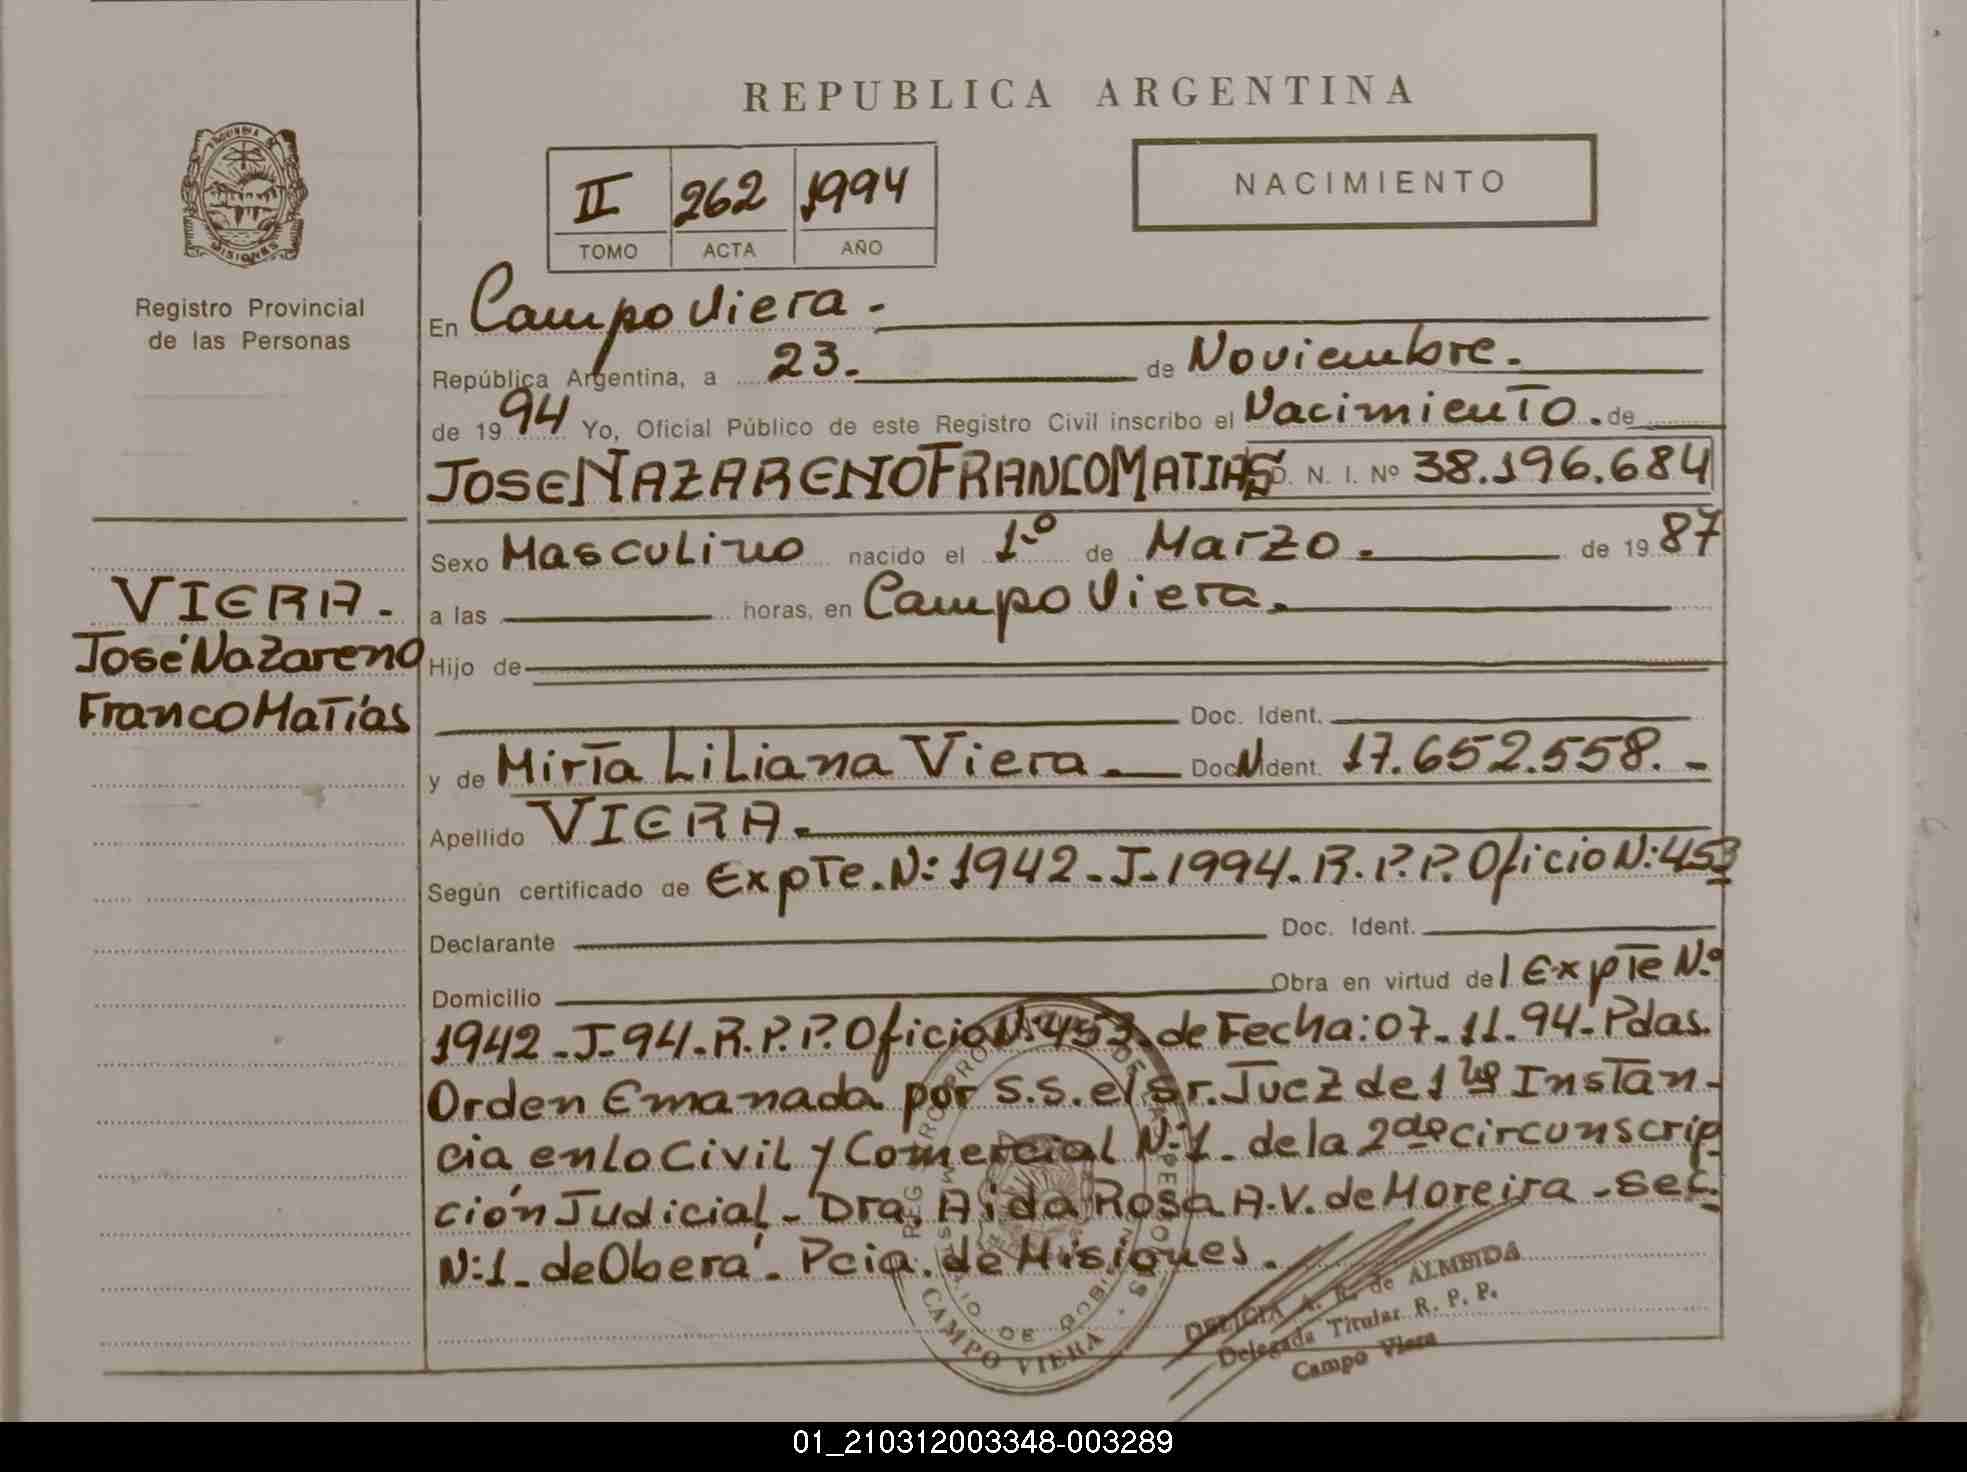 REPUBLICA ARGENTINA
NACIMIENTO
II 262 1994
TOMO ACTA AÑO
MISIONES
Registro Provincial
de las Personas
VIERA.-
José Nazareno
Franco Matías
En Campo Viera.-
República Argentina, a 23.- de Noviembre.
de 1994 Yo, Oficial Público de este Registro Civil inscribo el Nacimiento. de
JOSE NAZARENO FRANCO MATIAS D. N. I. Nº 38.196.684
Sexo Masculino nacido el 1º de Marzo. de 1987
a las horas, en Campo Viera.
Hijo de
Doc. Ident.
y de Mirta Liliana Viera. Doc. Ident. 17.652.558.-
Apellido VIERA.-
Según certificado de Expte. N: 1942-J-1994-R.P.P. Oficio N: 453
Declarante Doc. Ident.
Domicilio Obra en virtud del Expte Nº
1942-J-94-R.P.P. Oficio N: 453-de Fecha: 07-11-94-Pdas.
Orden Emanada por S.S. el Sr. Juez de 1ra Instan-
cia en lo Civil y Comercial N: 1-de la 2da circunscrip
ción Judicial-Dra. Aida Rosa A.V. de Moreira-Sec.
N: 1-de Oberá-Pcia. de Misiones.
CAMPO VIERA
DELICIA A. R. de ALMEIDA
Delegada Titular R. P. P.
Campo Viera
01_210312003348-003289